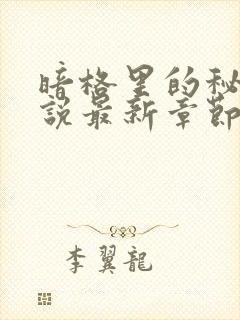 暗格里的秘
說最新章節
李翼龍